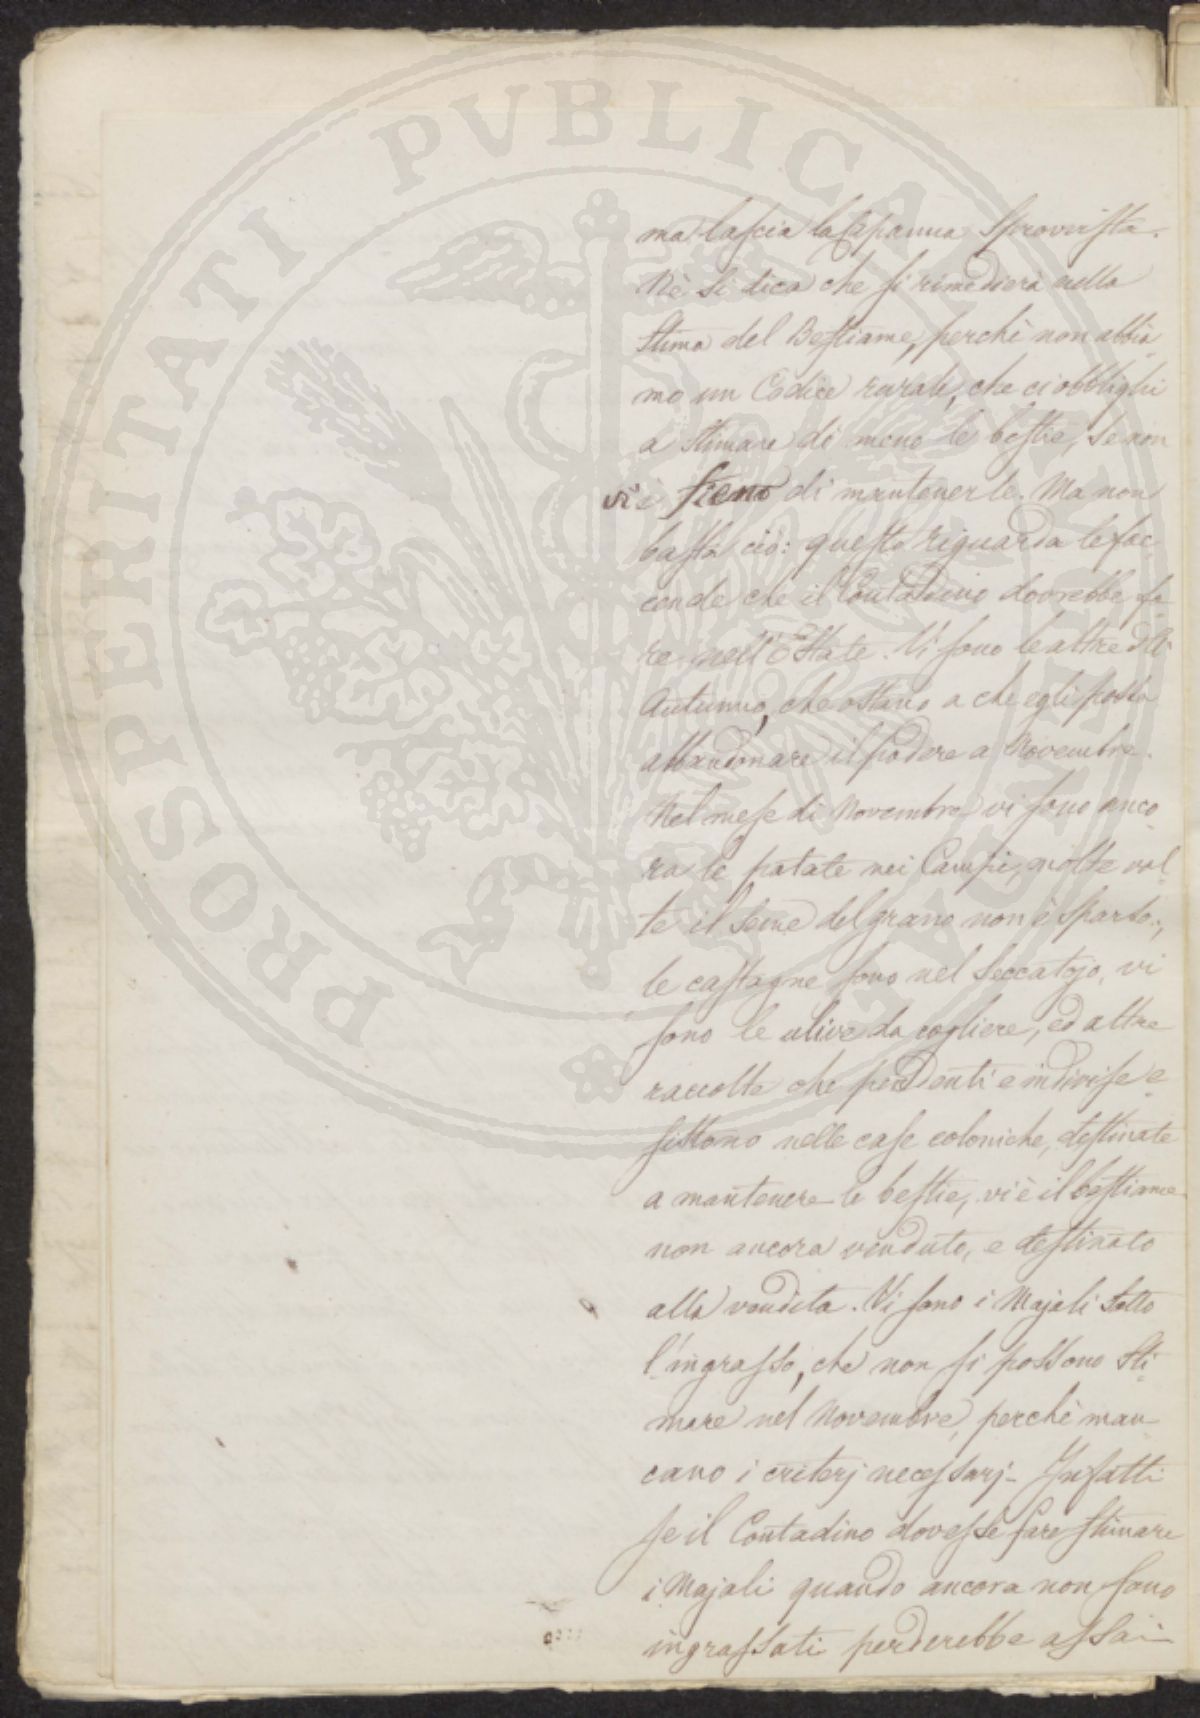 ma lascia la Capanna sprovvista.
Nè si dica che si rimedierà nella
stima del Bestiame, perchè non abbia
mo un Codice rurale, che ci obblighi
a stimare di meno le bestie, se non
vi è fieno di mantenerle. Ma non
basta ciò: questo riguarda le fac-
cende che il Contadino dovrebbe fa-
re nell'Estate. Vi sono le altre dell'
Autunno, che ostano a che egli possa
abbandonare il podere a Novembre.
Nel mese di Novembre vi sono anco-
ra le patate nei Campi, molte vol-
te il seme del grano non è sparso;
le castagne sono nel seccatojo, vi
sono le ulive da cogliere, ed altre
raccolte che pendenti e indivise e-
sistono nelle case coloniche, destinate
a mantenere le bestie, vi è il bestiame
non ancora venduto, e destinato
alla vendita. Vi sono i Majali sotto
l'ingrasso, che non si possono sti-
mare nel Novembre, perchè man-
cano i criterj necessarj - Infatti
se il Contadino dovesse fare stimare
i Majali quando ancora non sono
ingrassati perderebbe assai
PROSPERITATI PVBLICAE